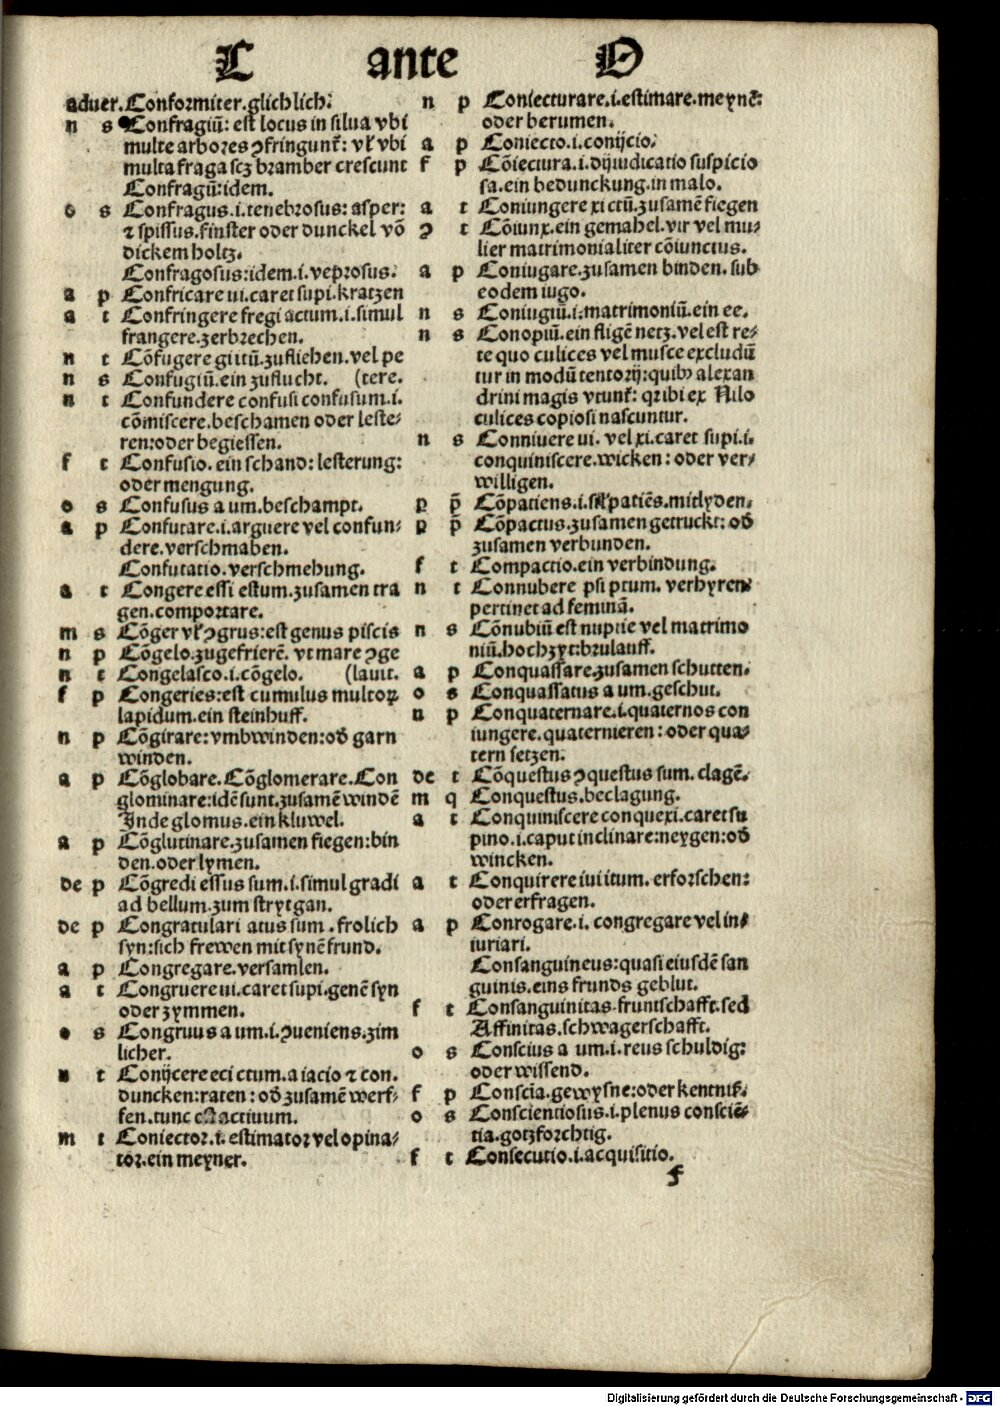 C ante O
aduer. Conformiter.glichlich:
n s Confragiū: est locus in silua vbi
multe arbores ꝯfringunt᷑: vl᷑ vbi
multa fraga scꝫ bramber crescunt
Confragū:idem.
o s Confragus.i.tenebrosus: asper:
⁊ spissus.finster oder dunckel vō
dickem holtz.
Confragosus:idem.i.veprosus.
a p Confricare ui.caret supi.kratzen
a t Confringere fregi actum.i.simul
frangere.zerbrechen.
n t Cōfugere gi itū.zufliehen.vel pe
n s Confugiū.ein zuflucht. (tere.
n t Confundere confusi confusum.i.
cōmiscere.beschamen oder leste⸗
ren:oder begiessen.
f t Confusio. ein schand: lesterung:
oder mengung.
o s Confusus a um.beschampt.
a p Confutare.i.arguere vel confun⸗
dere.verschmahen.
Confutatio.verschmehung.
a t Congere essi estum.zusamen tra
gen.comportare.
m s Cōger vl᷑ ꝯgrus:est genus piscis
n p Cōgelo.zugefrierē. vt mare ꝯge
n t Congelasco.i.cōgelo. (lauit.
f p Congeries:est cumulus multoꝝ
lapidum.ein steinhuff.
n p Cōgirare:vmbwinden:od̕ garn
winden.
a p Cōglobare.Cōglomerare.Con
glominare:idē sunt.zusamē windē
Inde glomus.ein kluwel.
a p Cōglutinare.zusamen fiegen:bin
den.oder lymen.
de p Cōgredi essus sum.i.simul gradi
ad bellum.zum strytgan.
de p Congratulari atus sum.frolich
syn:sich frewen mit synē frund.
a p Congregare.versamlen.
a t Congruere ui.caret supi.genē syn
oder zymmen.
o s Congruus a um.i.ꝯueniens.zim
licher.
n t Conijcere eci ctum.a iacio ⁊ con.
duncken:raten: od̕ zusamē werf⸗
fen.tunc actiuum.
m t Coniector.i.estimator vel opina⸗
tor.ein meyner.
n p Coniecturare.i.estimare.meynē:
oder berumen.
a p Coniecto.i.conijcio.
f p Cōiectura.i.dijudicatio suspicio
sa.ein bedunckung.in malo.
a t Coniungere xi ctū.zusamē fiegen
ꝯ t Cōiunx.ein gemahel.vir vel mu⸗
lier matrimonialiter cōiunctus.
a p Coniugare.zusamen binden. sub
eodem iugo.
n s Coniugiū.i.matrimoniū.ein ee.
n s Conopiū.ein fligē netz.vel est re⸗
te quo culices vel musce excludū
tur in modū tentorij:quibꝰ alexan
drini magis vtunt᷑: qꝛ ibi ex Nilo
culices copiosi nascuntur.
n s Conniuere ui. vel xi.caret supi.i.
conquiniscere.wicken: oder ver⸗
willigen.
p p̄ Cōpatiens.i.patiēs.mitlyden.
p p̄ Cōpactus.zusamen getruckt: od̕
zusamen verbunden.
f t Compactio.ein verbindung.
n t Connubere psi ptum. verhyren
pertinet ad feminā.
n s Cōnubiū est nuptie vel matrimo
niū.hochzyt:brulauff.
a p Conquassare.zusamen schutten.
o s Conquassatus a um.geschut.
n p Conquaternare.i.quaternos con
iungere.quaternieren: oder qua⸗
tern setzen.
de t Cōquestus ꝯquestus sum. clagē.
m q Conquestus.beclagung.
a t Conquiniscere conquexi.caret su
pino.i.caput inclinare:neygen:od̕
wincken.
a t Conquirere iui itum. erforschen:
oder erfragen.
a p Conrogare.i. congregare vel in⸗
iuriari.
Consanguineus:quasi eiusdē san
guinis.eins frunds geblut.
f t Consanguinitas fruntschafft.sed
Affinitas.schwagerschafft.
o s Conscius a um.i.reus schuldig:
oder wissend.
f p Consciā.gewysne:oder kentniß.
o s Conscientiosus.i.plenus consciē⸗
tia.gotzforchtig.
f t Consecutio.i.acquisitio.
f
Digitalisierung gefördert durch die Deutsche Forschungsgemeinschaft - DFG